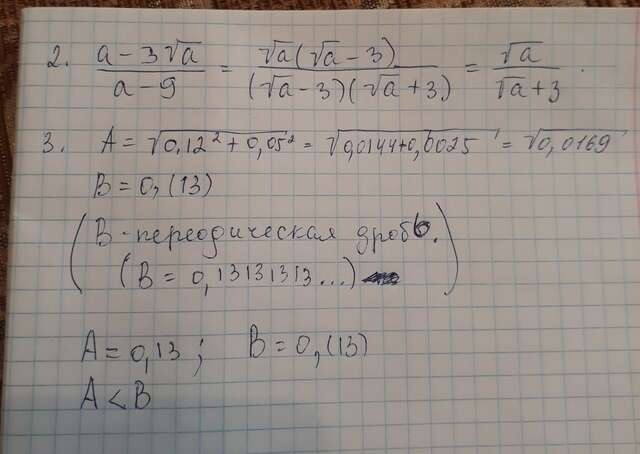 2. (a - 3√a)/(a - 9) = (√a(√a - 3))/((√a - 3)(√a + 3)) = √a/(√a + 3).
3. A = √(0,12² + 0,05²) = √(0,0144 + 0,0025) = √0,0169
B = 0,(13)
(B - переодическая дробь.
(B = 0,13131313...))
A = 0,13 ; B = 0,(13)
A < B